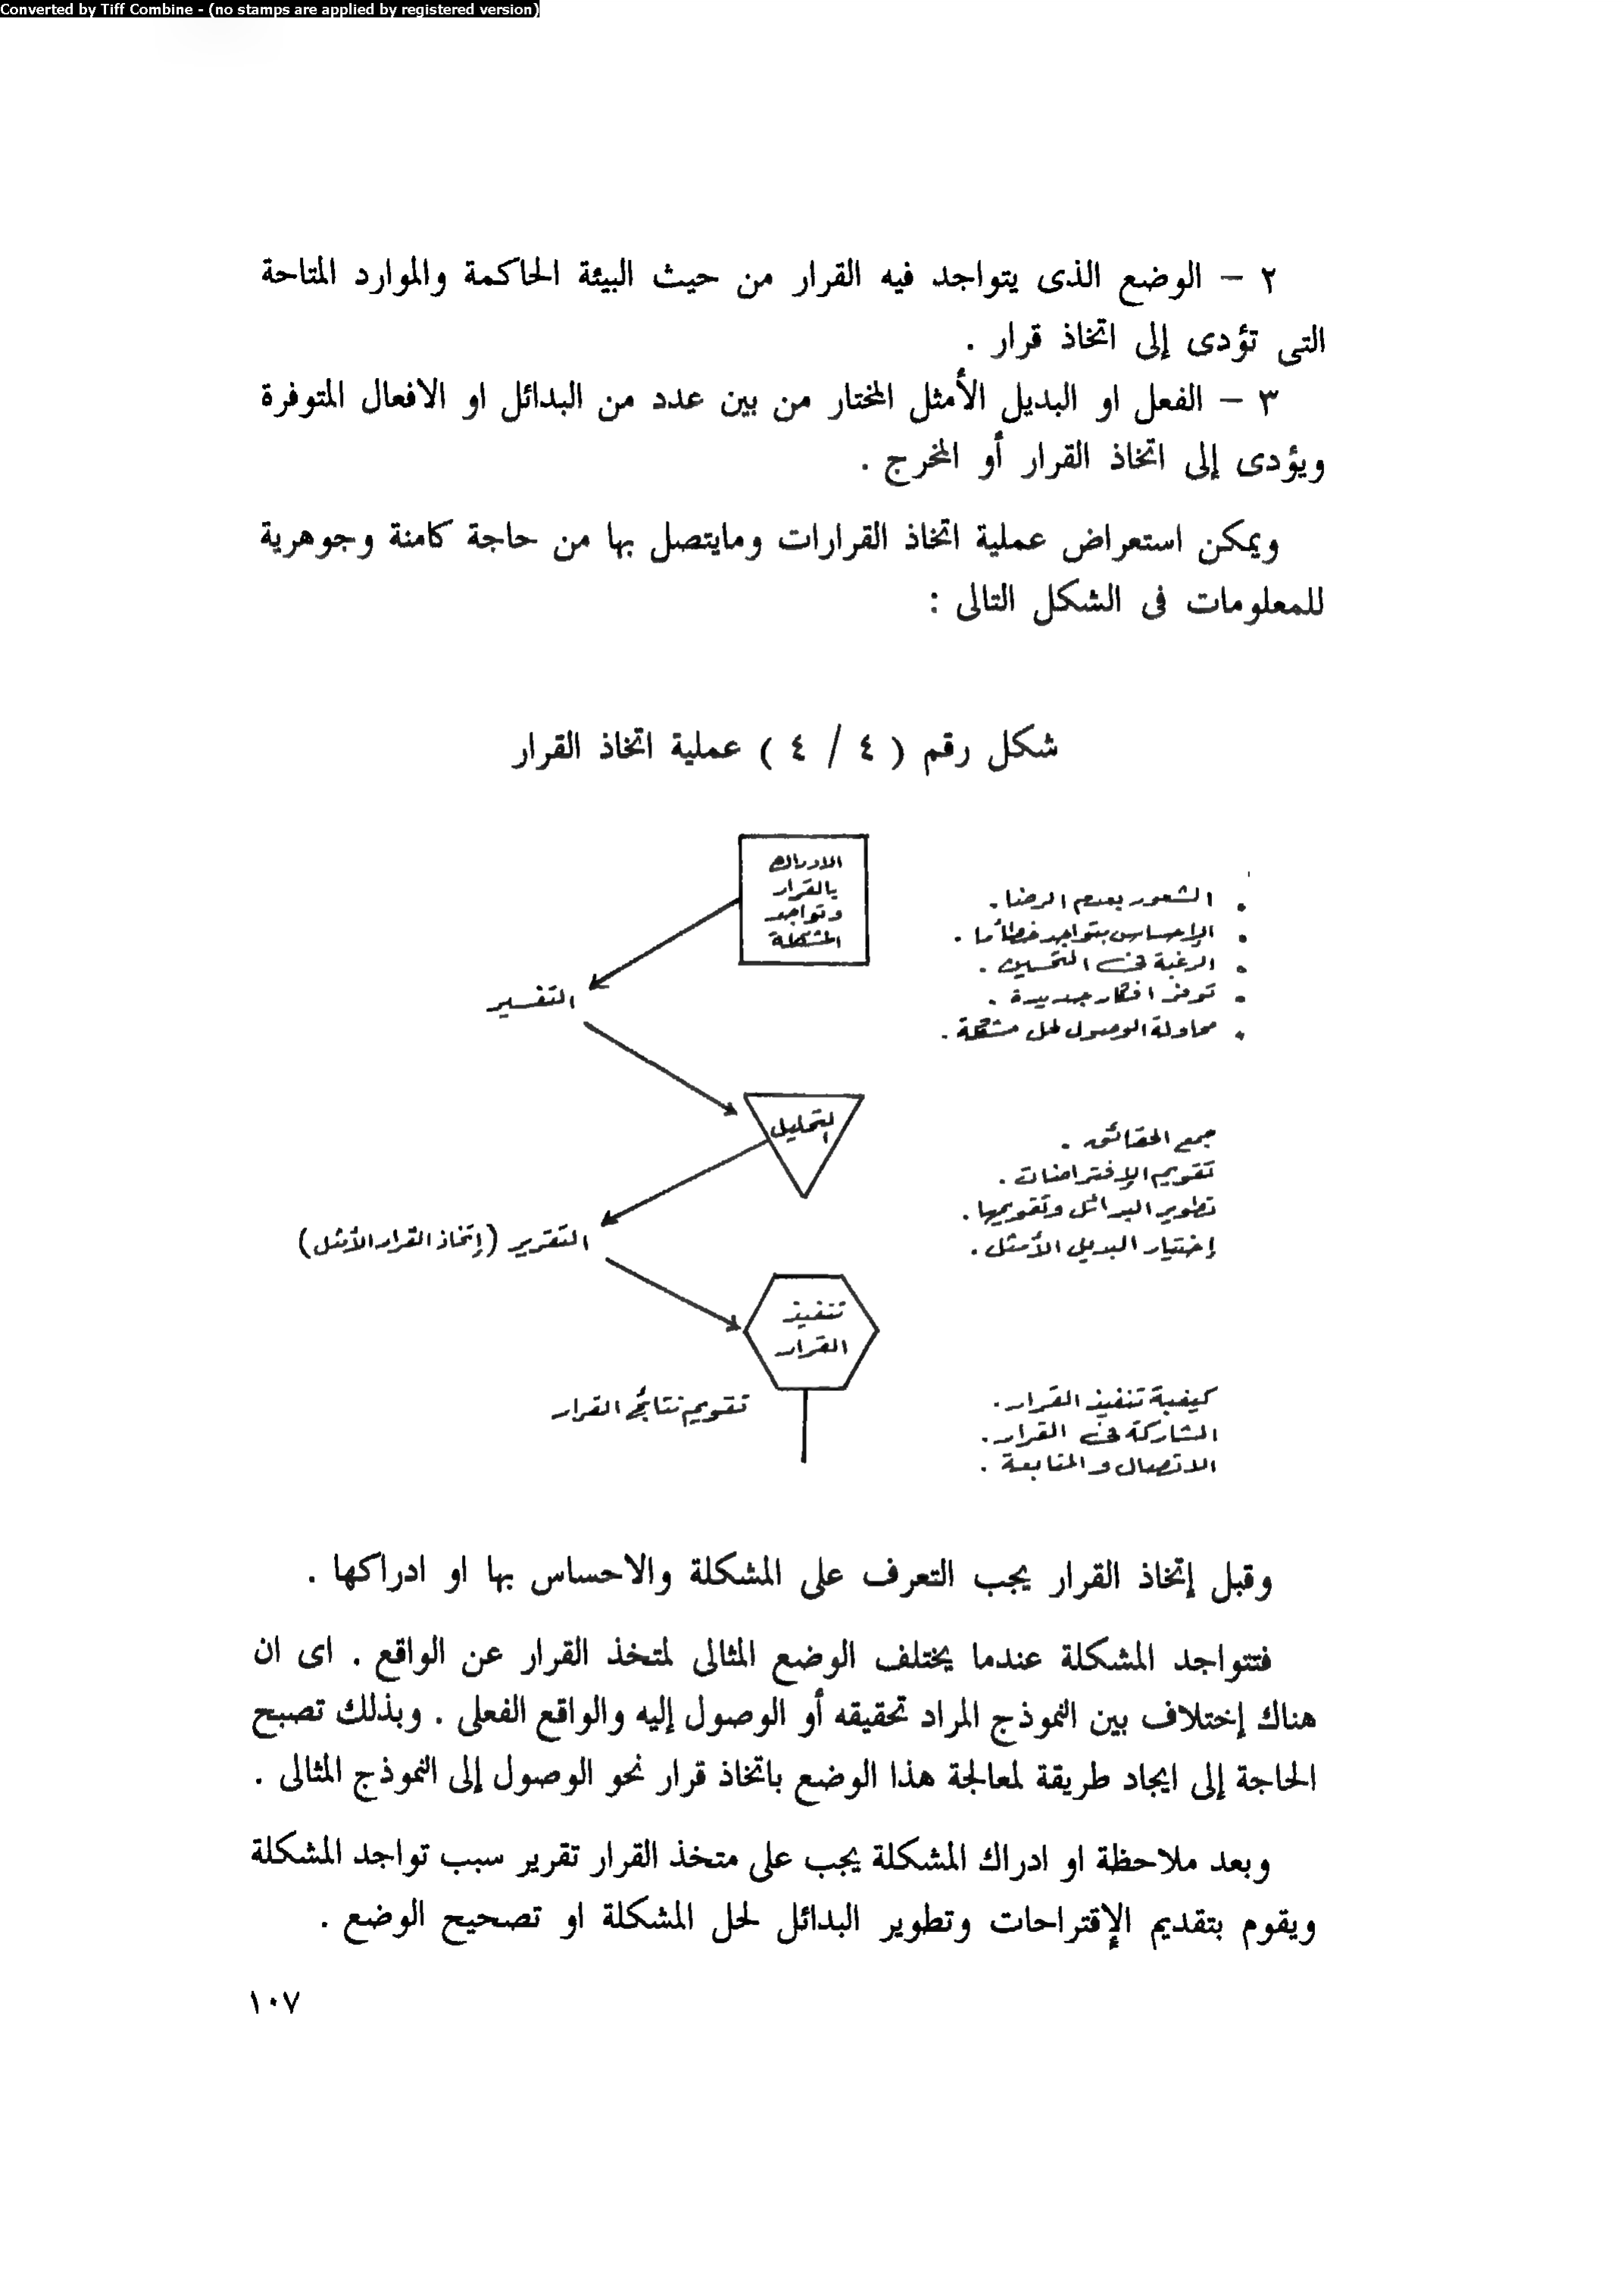 Converted by Tiff Combine - (no stamps are applied by registered version)
٢ – الوضع الذى يتواجد فيه القرار من حيث البيئة الحاكمة والموارد المتاحة
التى تؤدى إلى اتخاذ قرار .
٣ – الفعل او البديل الأمثل المختار من بين عدد من البدائل او الافعال المتوفرة
ويؤدى إلى اتخاذ القرار أو المخرج .
ويمكن استعراض عملية اتخاذ القرارات ومايتصل بها من حاجة كامنة وجوهرية
للمعلومات فى الشكل التالى :
شكل رقم ( ٤ / ٤ ) عملية اتخاذ القرار
الادراك
بالقرار
وتواجد
المشكلة
• الشعور بعدم الرضا .
• الإحساس بتواجد خطأ ما .
• الرغبة فى التحسين .
• توفر افكار جديدة .
• محاولة الوصول لحل مشكلة .
التفسير
التحليل
جمع الحقائق .
تقويم الإفتراضات .
تطوير البدائل وتقويمها .
إختيار البديل الأمثل .
التقرير (إتخاذ القرار الأمثل)
تنفيذ
القرار
تقويم نتائج القرار
كيفية تنفيذ القرار .
المشاركة فى القرار .
الاتصال والمتابعة .
وقبل إتخاذ القرار يجب التعرف على المشكلة والاحساس بها او ادراكها .
فتتواجد المشكلة عندما يختلف الوضع المثالى لمتخذ القرار عن الواقع . اى ان
هناك إختلاف بين النموذج المراد تحقيقه أو الوصول إليه والواقع الفعلى . وبذلك تصبح
الحاجة إلى ايجاد طريقة لمعالجة هذا الوضع باتخاذ قرار نحو الوصول إلى النموذج المثالى .
وبعد ملاحظة او ادراك المشكلة يجب على متخذ القرار تقرير سبب تواجد المشكلة
ويقوم بتقديم الإقتراحات وتطوير البدائل لحل المشكلة او تصحيح الوضع .
١٠٧